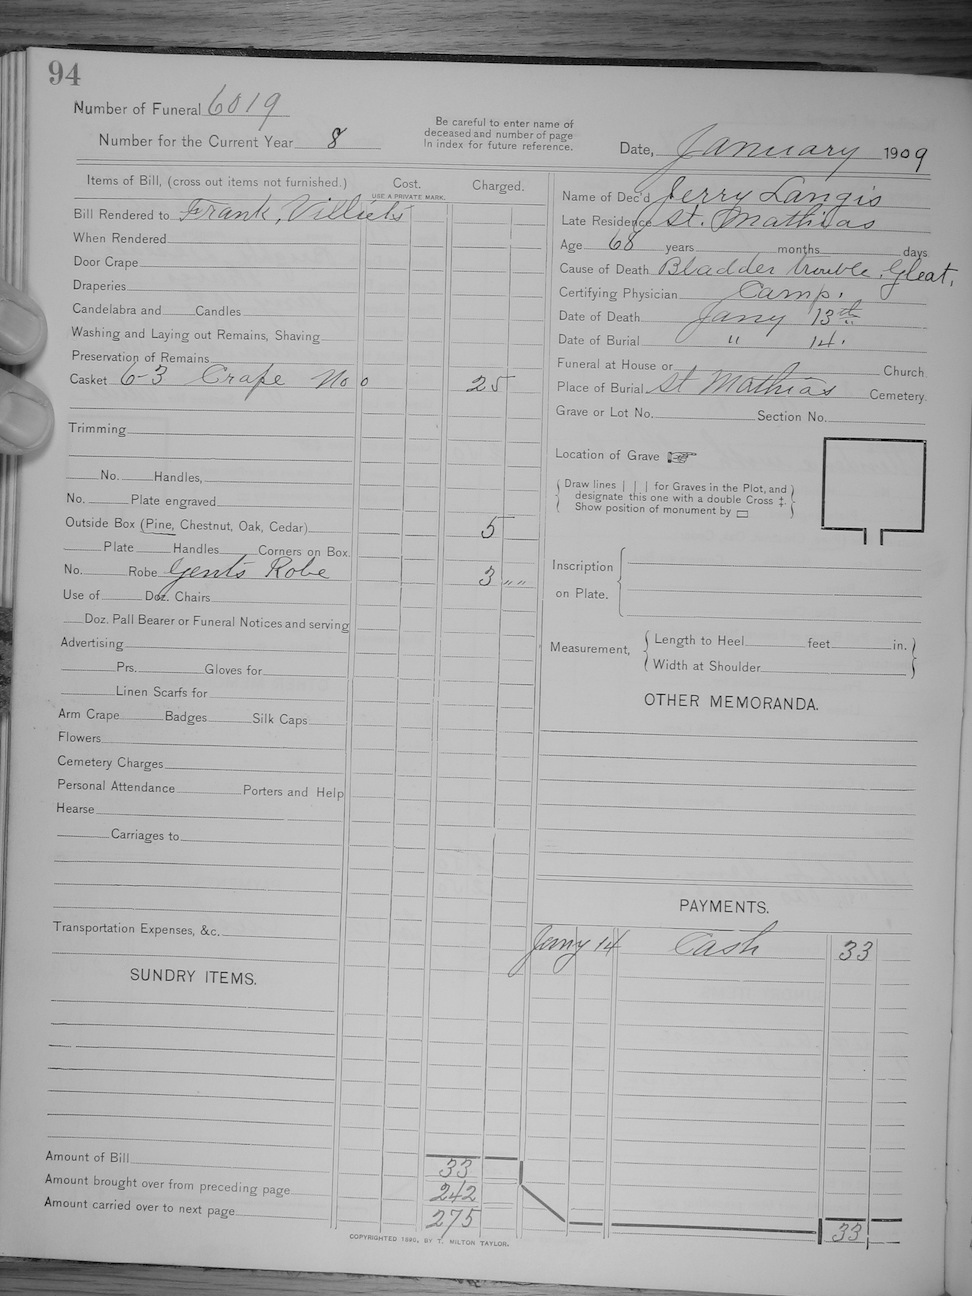 94
Number of Funeral 6019
Number for the Current Year 8
Be careful to enter name of
deceased and number of page
in index for future reference.
Date, January 1909
Items of Bill, (cross out items not furnished.) Cost. Charged.
USE A PRIVATE MARK.
Bill Rendered to Frank
When Rendered
Door Crape
Draperies
Candelabra and Candles
Washing and Laying out Remains, Shaving
Preservation of Remains
Casket 6-3 Crape No 0 25
Trimming
No. Handles,
No. Plate engraved
Outside Box (Pine, Chestnut, Oak, Cedar) 5
Plate Handles Corners on Box.
No. Robe Gents Robe 3 " "
Use of Doz. Chairs
Doz. Pall Bearer or Funeral Notices and serving
Advertising
Prs. Gloves for
Linen Scarfs for
Arm Crape Badges Silk Caps
Flowers
Cemetery Charges
Personal Attendance Porters and Help
Hearse
Carriages to
Transportation Expenses, &c.
SUNDRY ITEMS.
Amount of Bill 33
Amount brought over from preceding page 242
Amount carried over to next page 275
COPYRIGHTED 1896, BY T. MILTON TAYLOR.
Name of Dec'd Jerry Langis
Late Residence St. Mathias
Age 68 years months days
Cause of Death Bladder trouble,
Certifying Physician Camp.
Date of Death Jany 13th
Date of Burial " 14.
Funeral at House or Church.
Place of Burial St Mathias Cemetery.
Grave or Lot No. Section No.
Location of Grave ☞
Draw lines | | | for Graves in the Plot, and
designate this one with a double Cross ‡.
Show position of monument by ▭
Inscription
on Plate.
Measurement, Length to Heel feet in.
Width at Shoulder
OTHER MEMORANDA.
PAYMENTS.
Jany 14 Cash 33
33